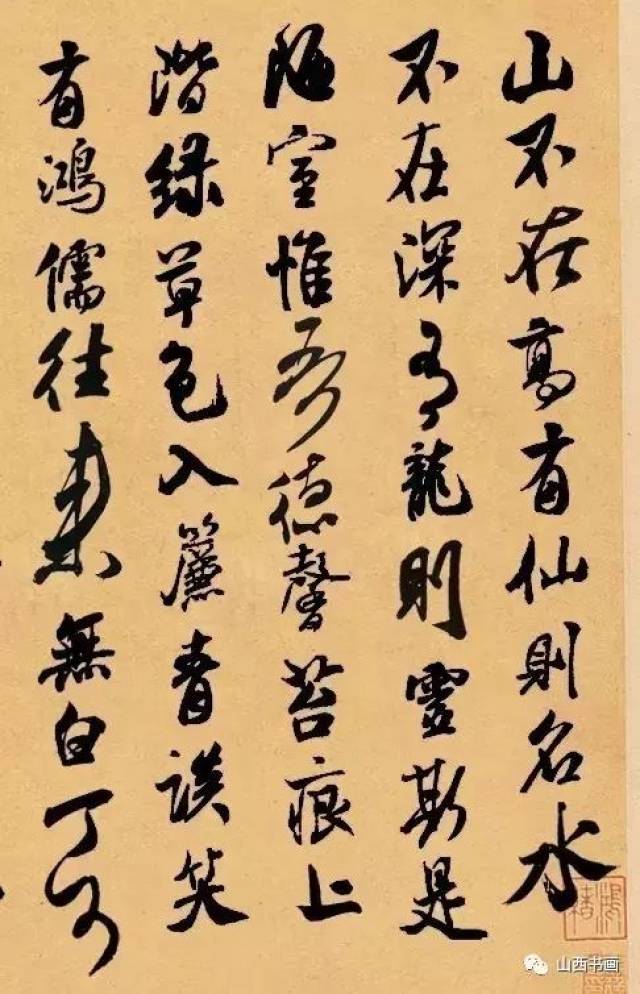 山不在高有仙則名水
不在深有龍則靈斯是
陋室惟吾德馨苔痕上
階緑草色入簾青談笑
有鴻儒往来無白丁可
山西书画